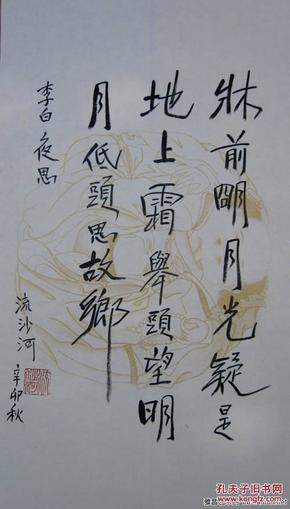 牀前朙月光疑是
地上霜舉頭望明
月低頭思故鄉
李白夜思
流沙河
辛卯秋
孔夫子旧书网